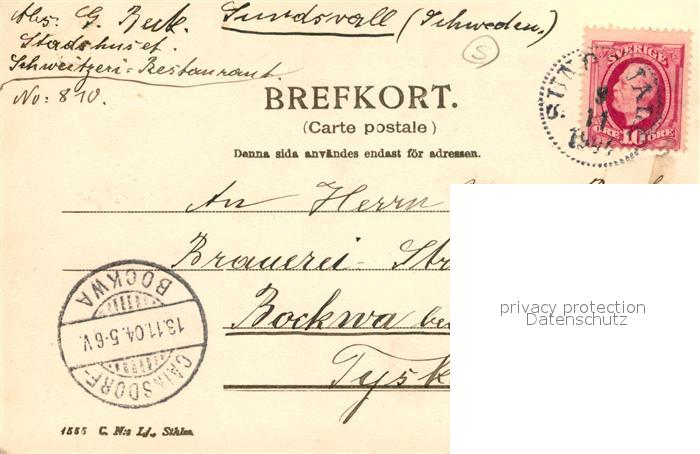 Abs: G. Beck. Sundsvall (Schweden.)
Stadshuset.
Schweitzeri-Restaurant.
No: 810.
S
SVERIGE
10
ÖRE ÖRE
SUNDSVALL
11
BREFKORT.
(Carte postale)
Danna sida användes endast för adressen.
An Herrn
Brauerei-
Bockwa
Tysk
CAINSDORF-
BOCKWA
13.11.04.5-6V.
1555 C. N:s Lj., Sthlm.
privacy protection
Datenschutz